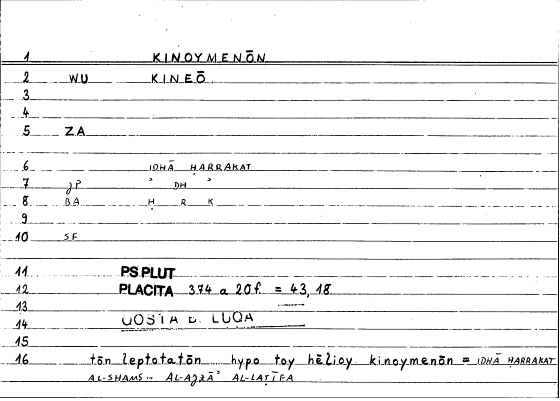 1 KINOYMENŌN
2 WU KINEŌ
3
4
5 ZA
6 IDHĀ ḤARRAKAT
7 gP ʾ DH ʾ
8 BA Ḥ R K
9
10 SF
11 PS PLUT
12 PLACITA 374 a 20f. = 43, 18
13
14 QOSTA B. LUQA
15
16 tōn leptotatōn hypo toy hēlioy kinoymenōn = IDHĀ ḤARRAKAT
AL-SHAMS AL-AǧZĀʾ AL-LAṬĪFA